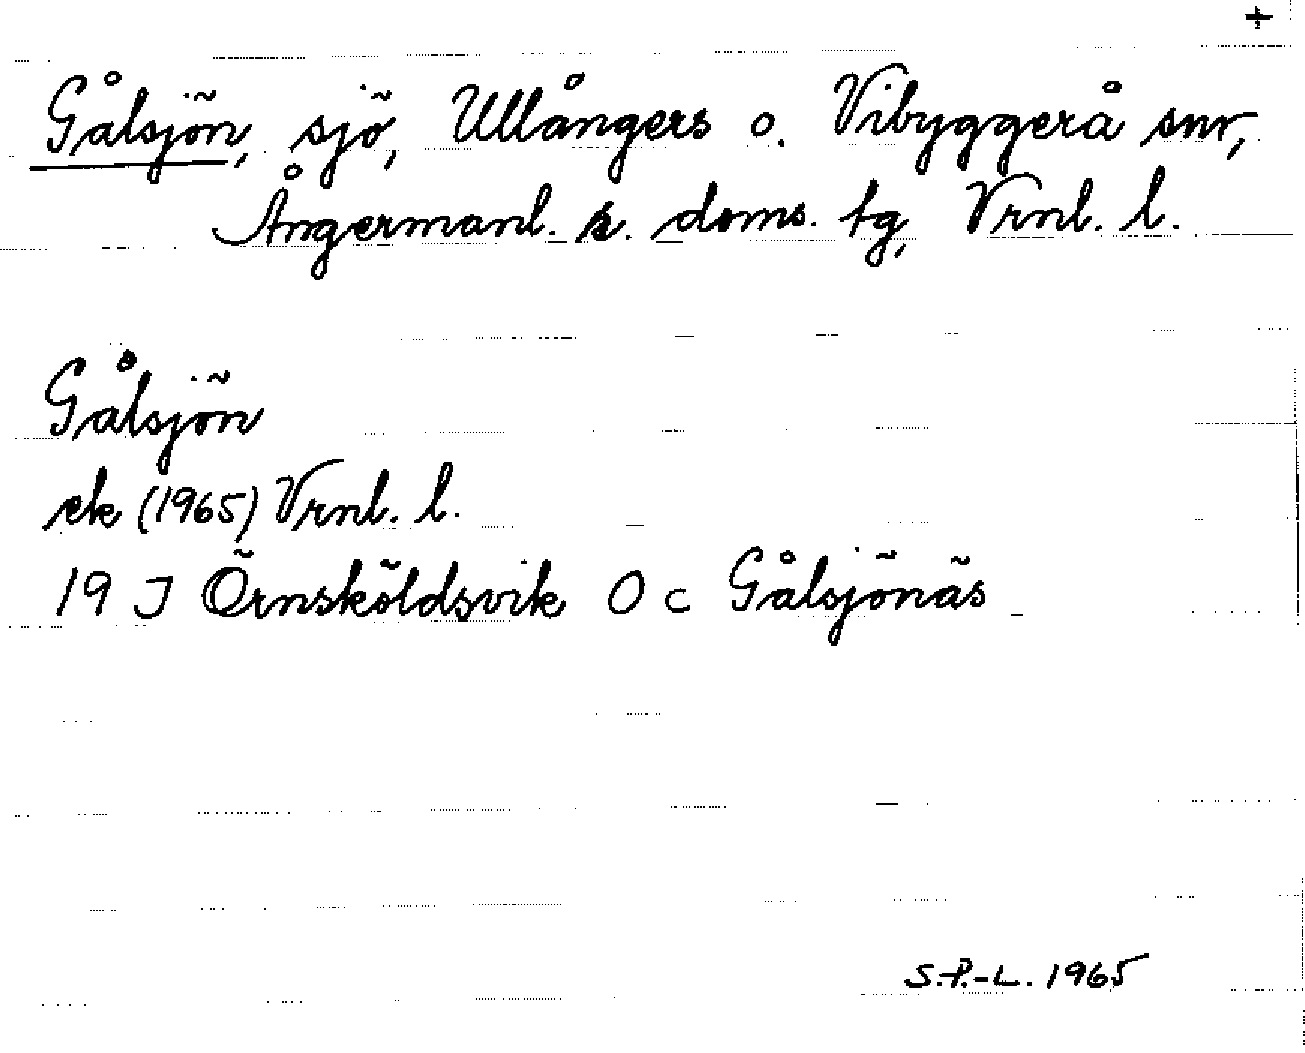 +
Gålsjön, sjö, Ullångers o. Vibyggerå snr,
Ångermanl. s. doms. tg, Vrnl. l.
Gålsjön
ek (1965) Vrnl. l.
19 J Örnsköldsvik O c Gålsjönäs
S.P.-L. 1965